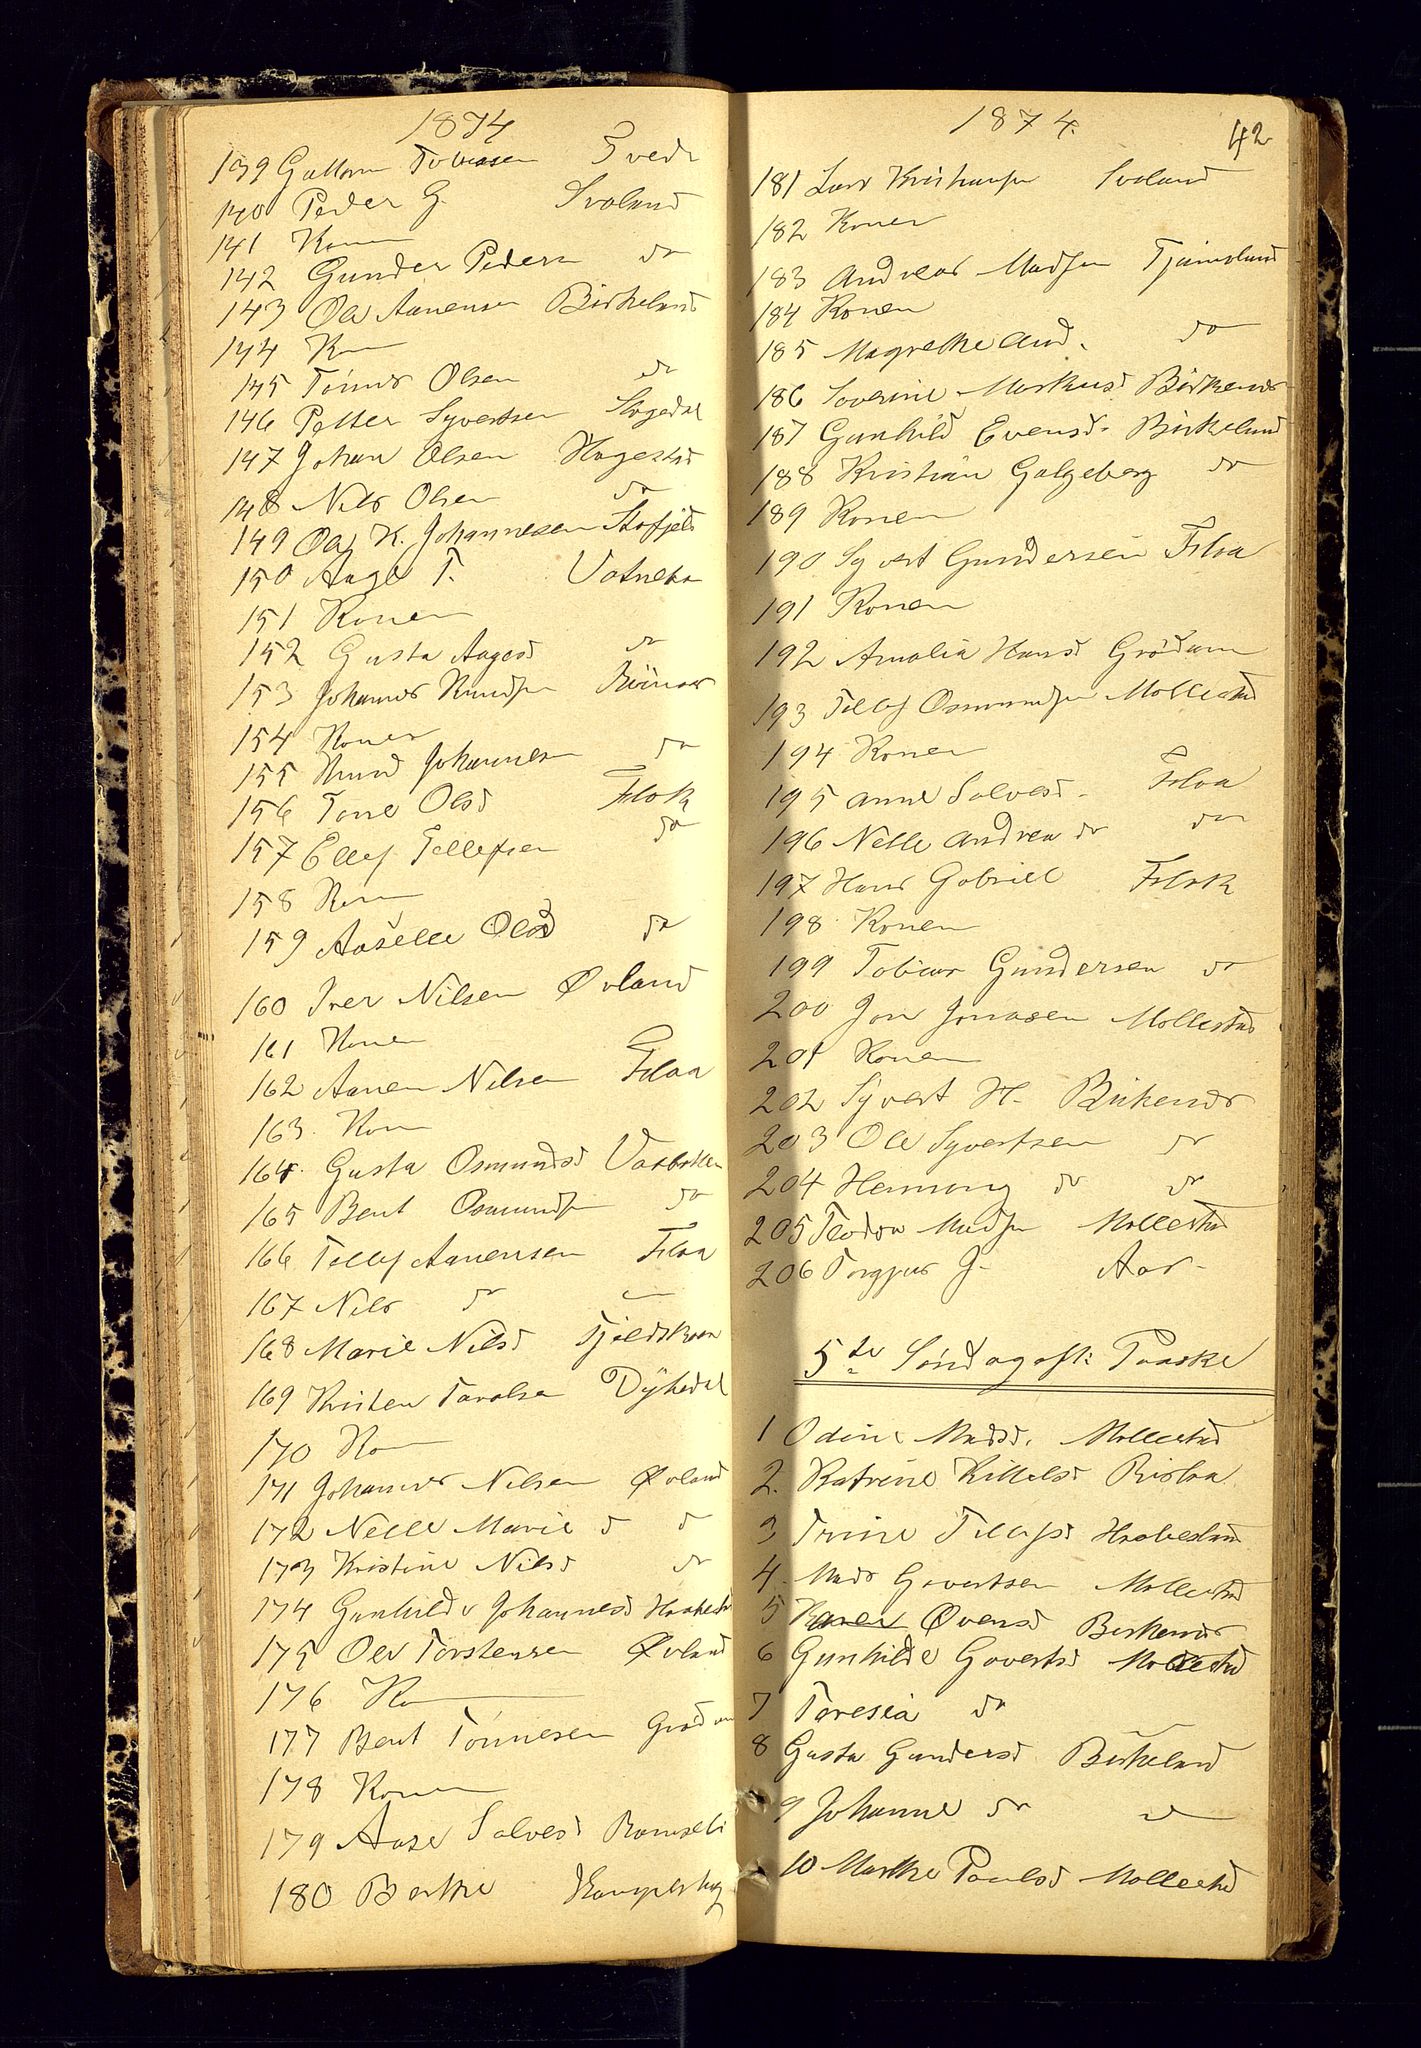 1874
139 Guttorm Tobiassen Tvede
140 Peder G. Svaland
141 Konen
142 Gunder Peders do
143 Ole Aanensen Birkeland
144 Kon
145 Tønnes Olsen do
146 Petter Syvertsen
147 Johan Olsen Hagestad
148 Nils Olsen do
149 Ole K. Johannesen Stofjeld
150 Aage T. Vatnebo
151 Konen
152 Gusta Aagesd do
153 Johannes Knudsen
154 Konen
155 Knud Johannesen do
156 Tone Olsd Flak
157 Ellef Tellefsen do
158 Kon
159 Aaselle Olsd do
160 Iver Nilsen Øvland
161 Konen
162 Aanen Nilsen Flaa
163 Kon
164 Gusta Osmundsd Vasbakken
165 Bent Osmundsen do
166 Tellef Aanensen Flaa
167 Nils do
168 Marie Nilsd
169 Kristen Taralsen Dykedal
170 Kon
171 Johannes Nilsen Øvland
172 Nelle Marie d d
173 Kristine Nilsd do
174 Gunhilde Johannesd
175 Ole Torstensen Øvland
176 Kon
177 Bent Tønnesen Grødum
178 Konen
179 Aase Salvesd
180 Berthe
1874. 42
181 Lars Kristiansen Svaland
182 Konen
183 Andreas Madsen
184 Konen
185 Magrethe And. do
186 Severine Markusd Birkenes
187 Gunhild Evensd. Birkeland
188 Kristian Galgeberg do
189 Konen
190 Syvert Gundersen Flaa
191 Konen
192 Amalia Hansd Grødum
193 Tellef Osmundsen Mollestad
194 Konen
195 Anne Salvesd. Flaa
196 Nelle Andrea do do
197 Hans Gabriel Flak
198 Konen
199 Tobias Gundersen do
200 Jon Jonasen Mollestad
201 Konen
202 Syvert H. Birkenes
203 Ole Syvertsen do
204 Henning do do
205 Madsen Mollestad
206 Torgjus J. Aas
5te Søndag eft: Paaske
1 Odine Madsd. Mollestad
2. Katrine Kittelsd Rislaa
3 Trine Tellefsd
4. Mads Govertsen Mollestad
5 Karen Øvensd Birkenes
6 Gunhilde Govertsd Mollestad
7 Teresia do
8 Gusta Gundersd Birkeland
9 Johanne do do
10 Marthe Paulsd Mollestad